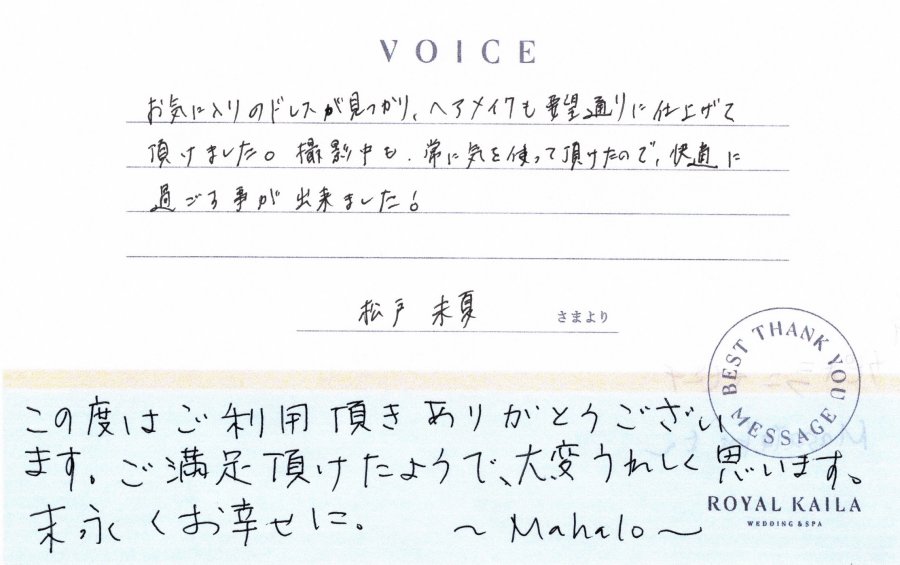 VOICE
お気に入りのドレスが見つかり、ヘアメイクも要望通りに仕上げて
頂けました。撮影中も、常に気を使って頂けたので、快適に
過ごす事が出来ました！
松戸 未夏 さまより
BEST THANK YOU MESSAGE
この度はご利用頂きありがとうござい
ます。ご満足頂けたようで、大変うれしく思います。
末永くお幸せに。 ～Mahalo～
ROYAL KAILA
WEDDING & SPA